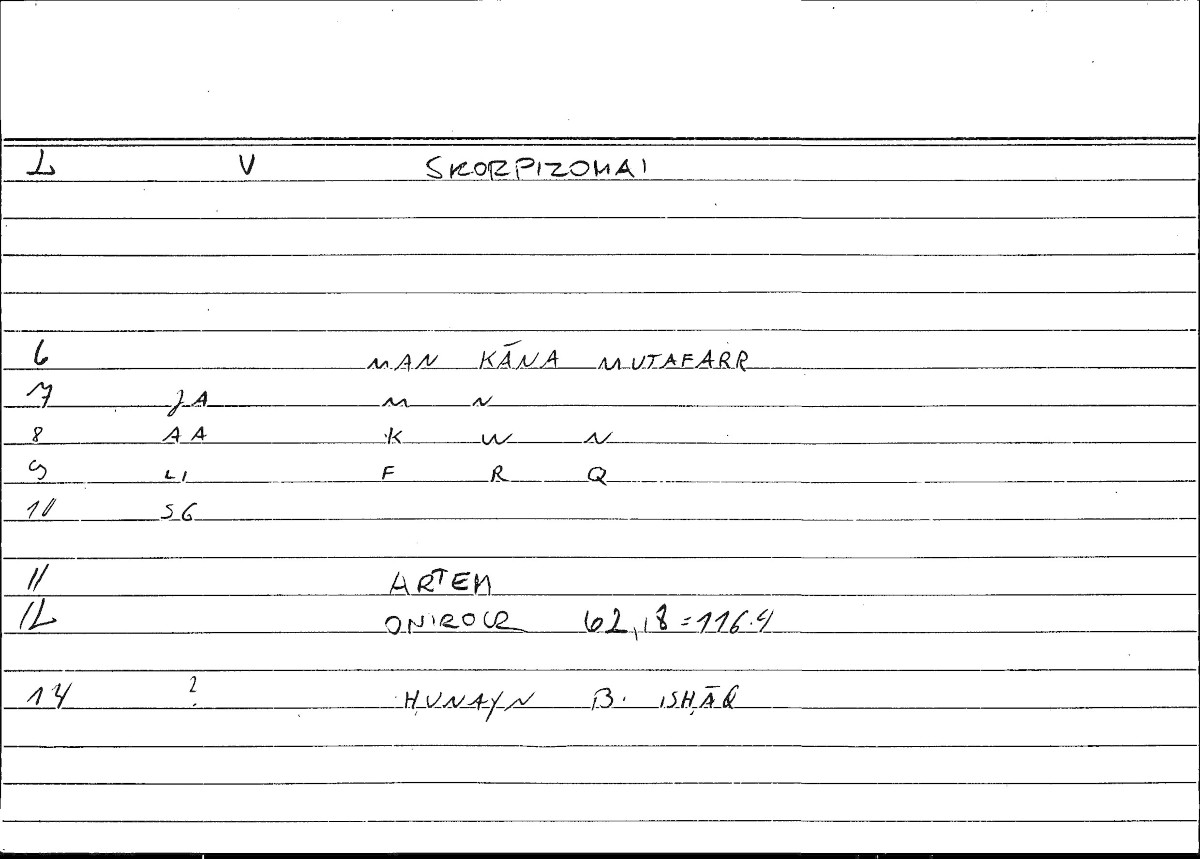 2 V SKORPIZOMAI
6 MAN KĀNA MUTAFARR
7 JA M N
8 AA K W N
9 LI F R Q
10 SG
11 ARTEM
12 ONIROCR 62,18=116.4
14 ? ḤUNAYN B. ISḤĀQ